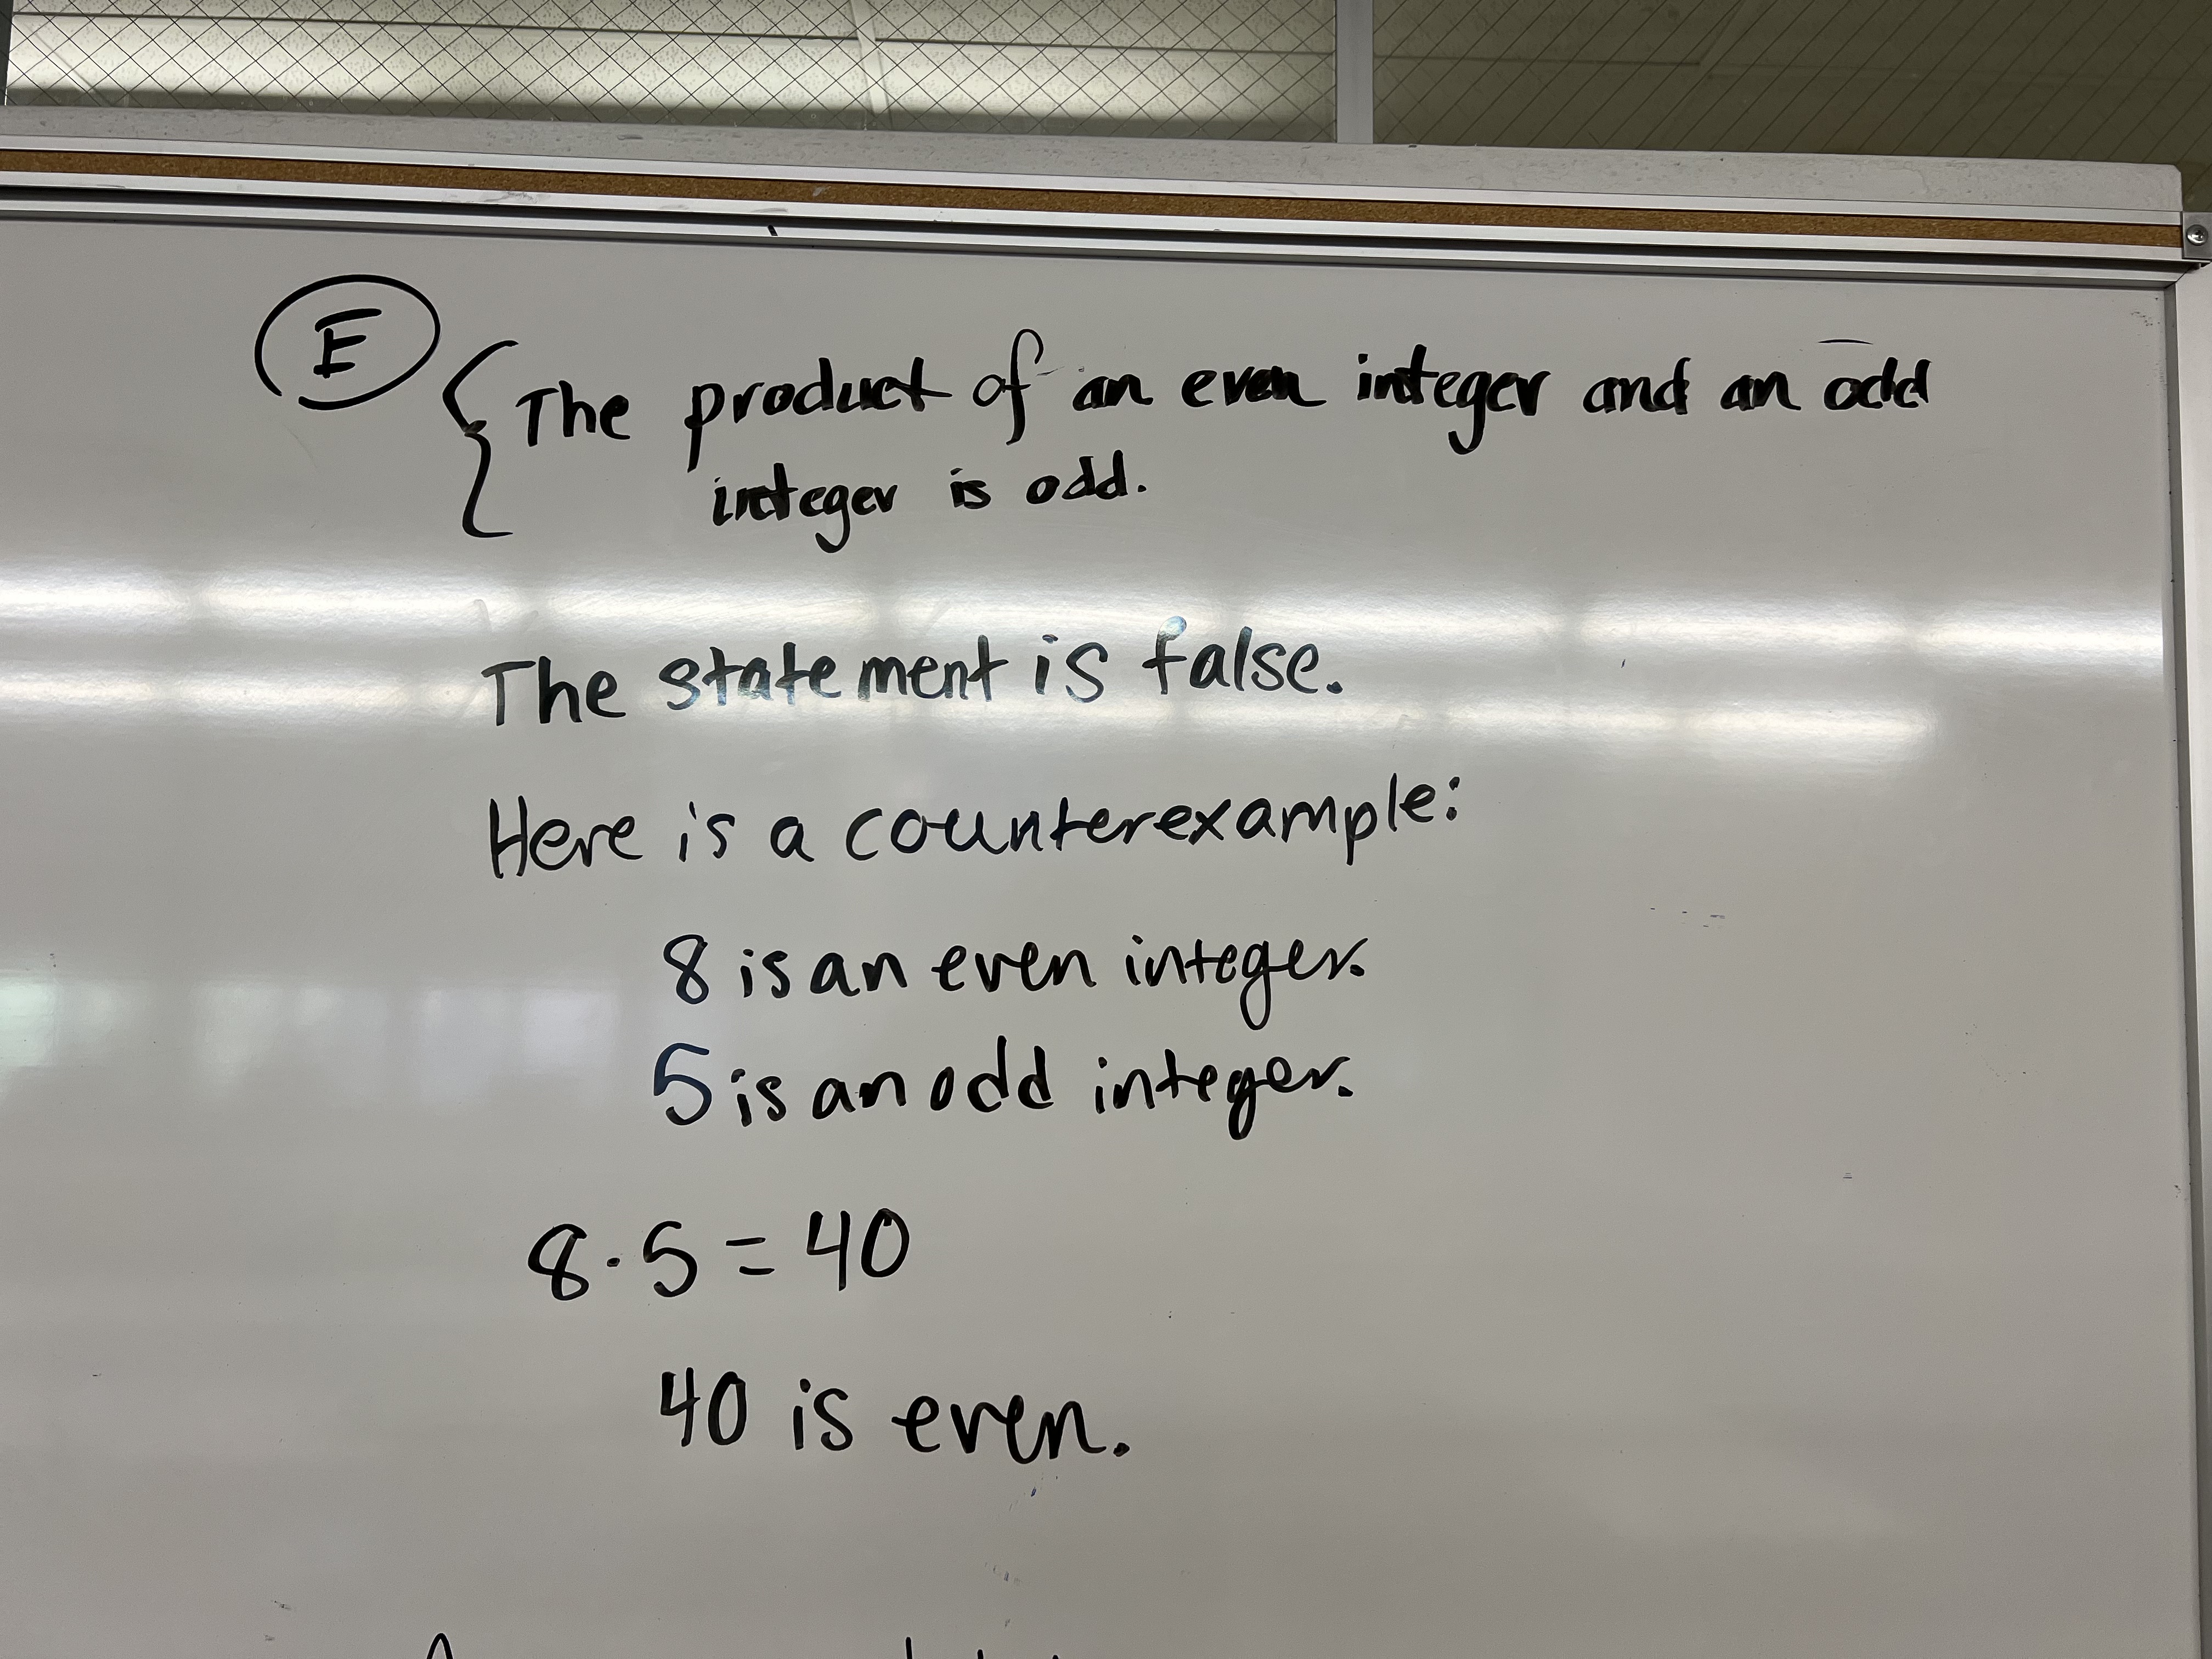 E
The product of an even integer and an odd
integer is odd.
The statement is false.
Here is a counterexample:
8 is an even integer.
5 is an odd integer.
8 · 5 = 40
40 is even.